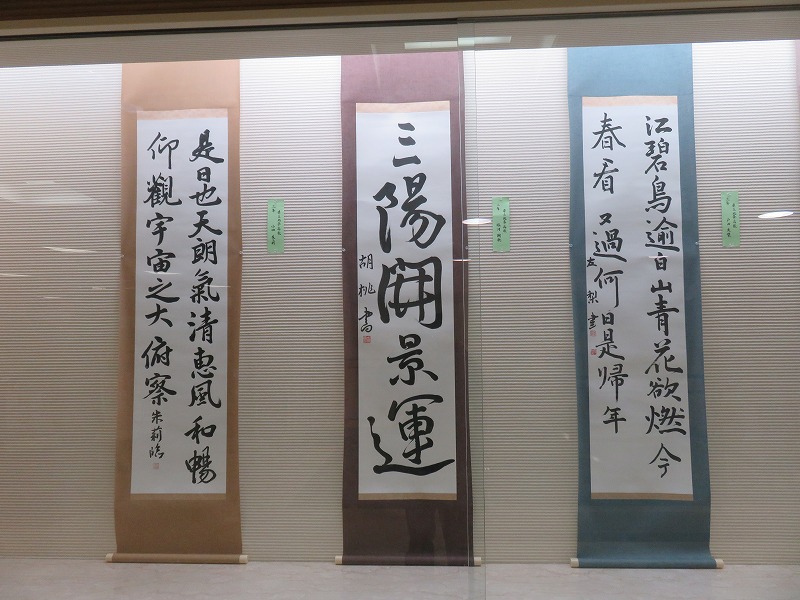 江碧鳥逾白山青花欲燃今
春看又過何日是帰年
梨書
三陽開景運
胡桃書
是日也天朗氣清恵風和暢
仰觀宇宙之大俯察
朱莉臨